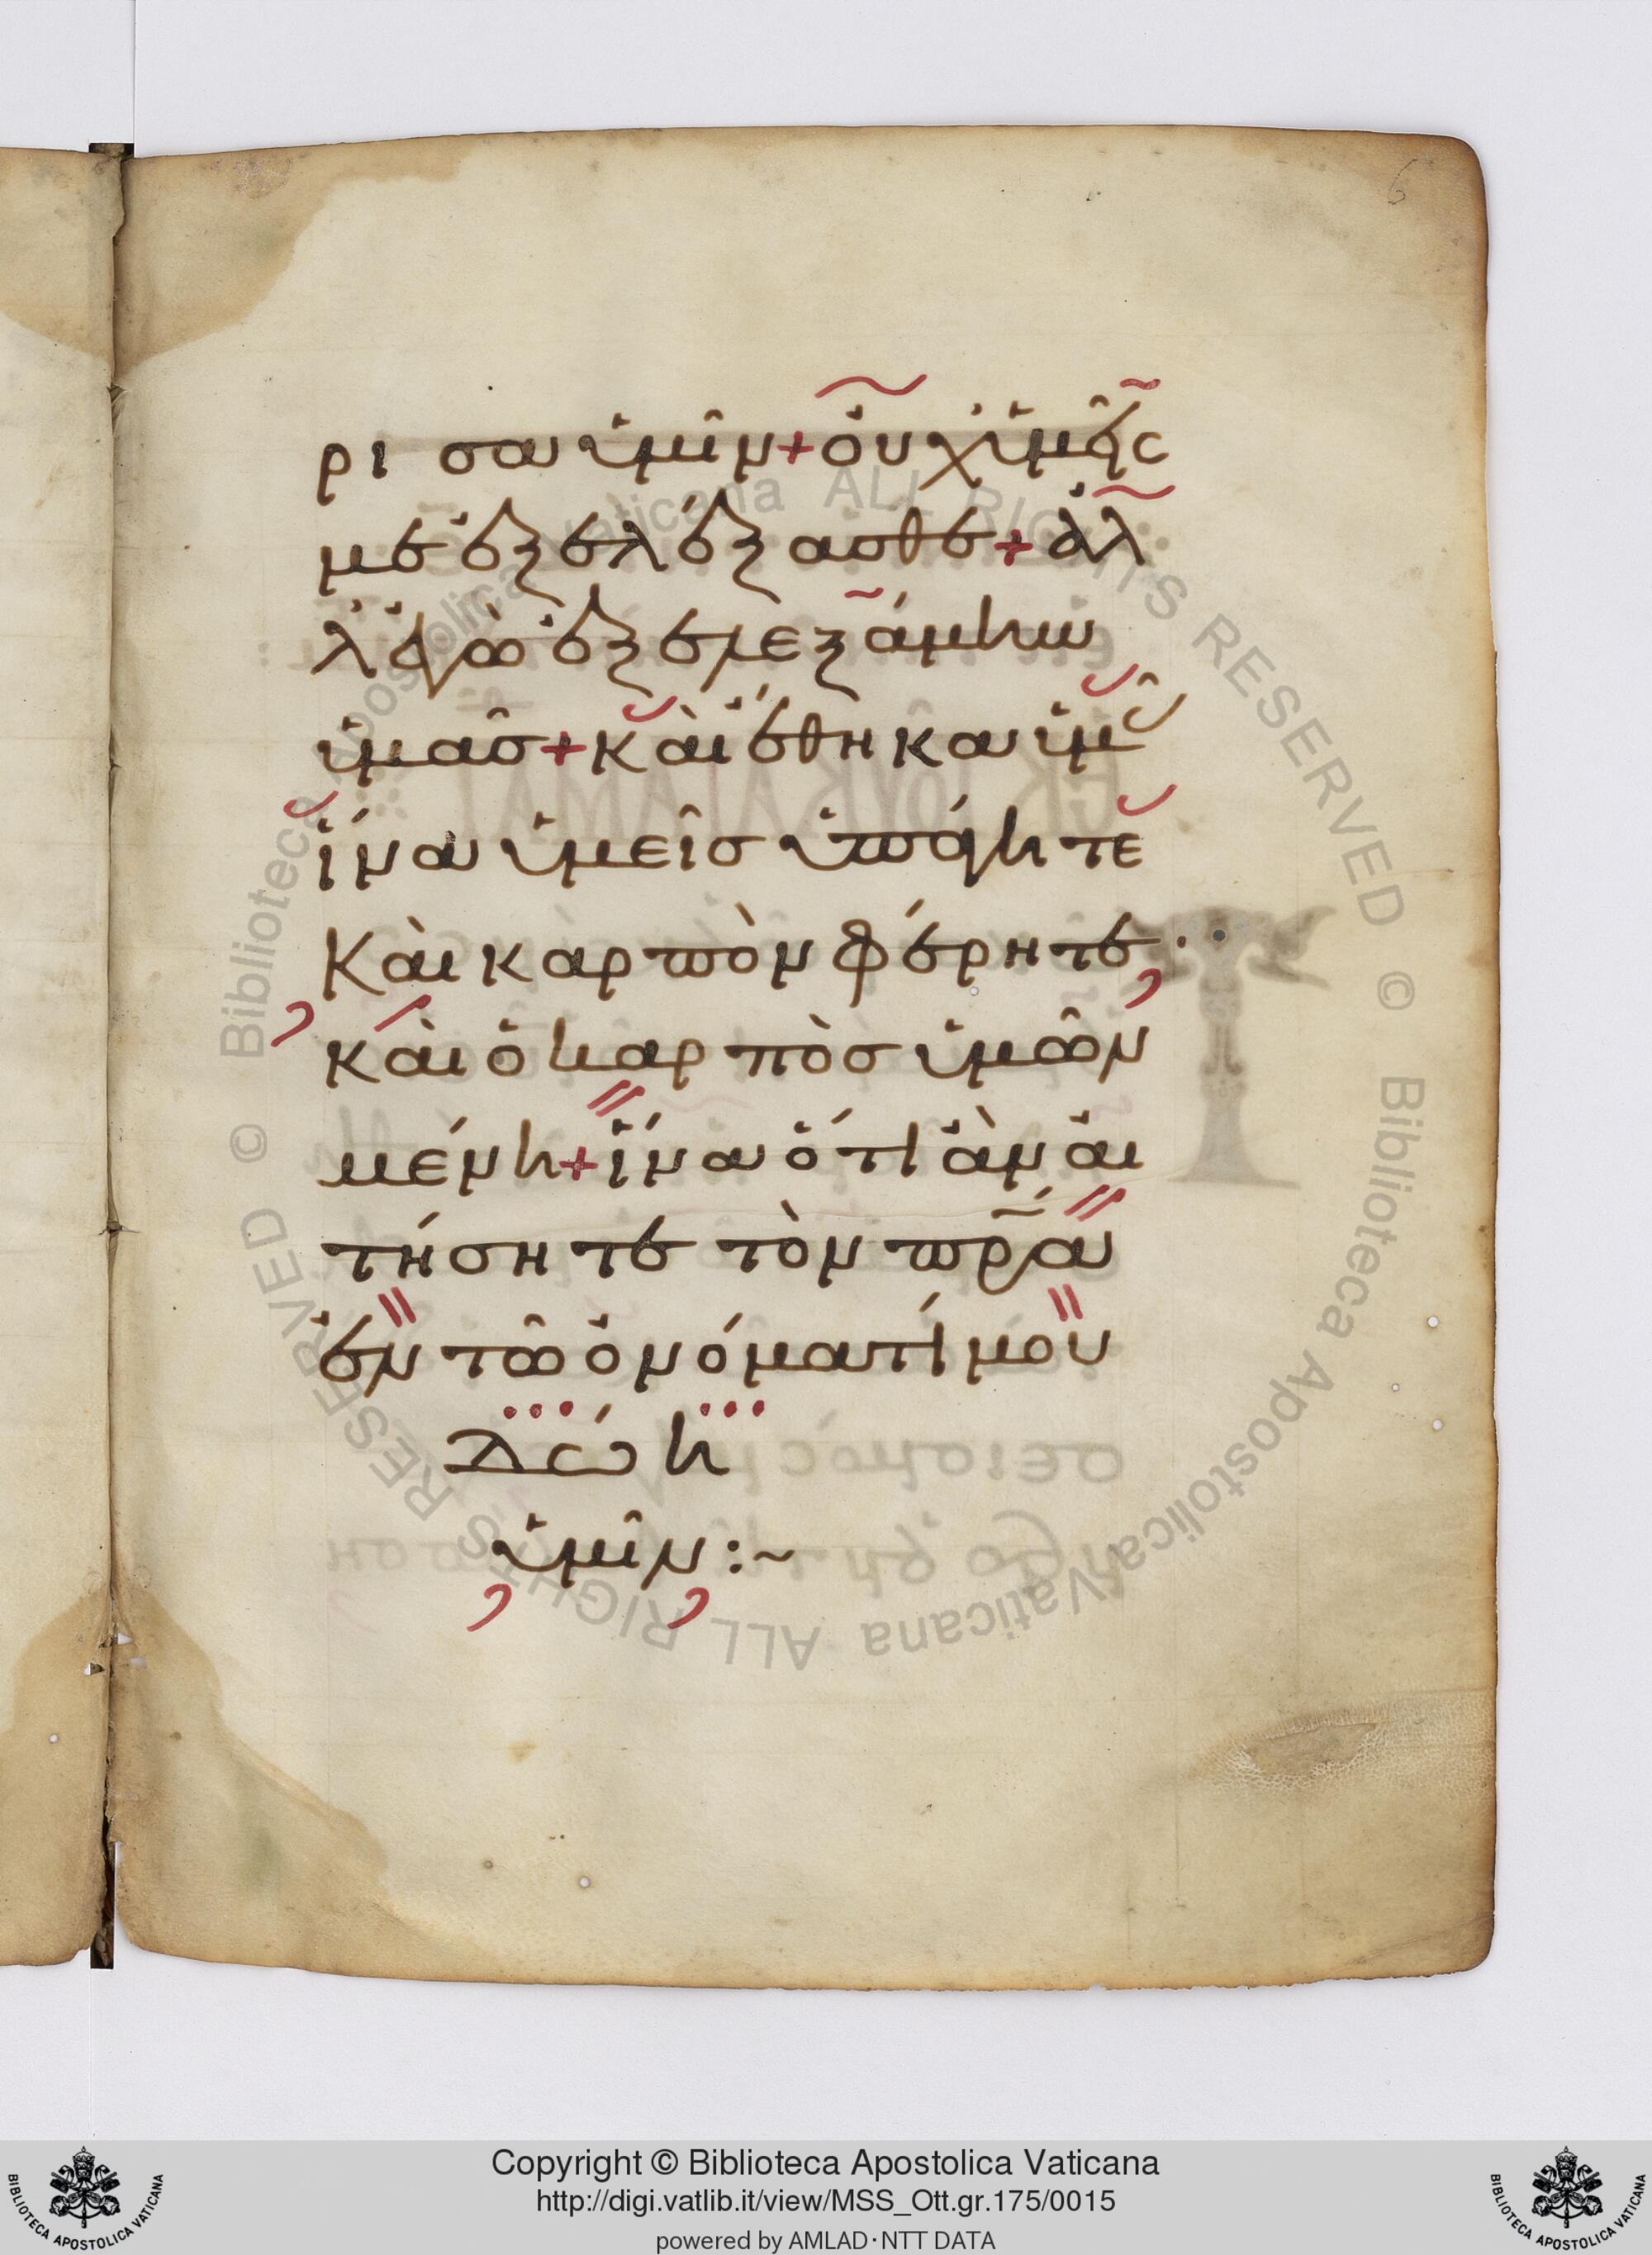 6
ρισα ὑμῖν + ὀυχ ὑμεῖς
με ἐξελέξασθε + ἀλ
λ' ἐγὼ ἐξελεξάμην
ὑμᾶσ + κὰι ἔθηκα ὑμᾶς
ἵνα ὑμεῖσ ὑπάγητε
Κὰι καρπὸν φέρητε·
κὰι ὁ καρπὸσ ὑμῶν
μένη + ἵνα ὅτι ἂν ἀι
τήσητε τὸν πρ̅α
ἐν τῶ ὀνόματί μου
δώη
ὑμῖν :~
© Biblioteca Apostolica Vaticana ALL RIGHTS RESERVED © Biblioteca Apostolica Vaticana ALL RIGHTS RESERVED
Copyright © Biblioteca Apostolica Vaticana
http://digi.vatlib.it/view/MSS_Ott.gr.175/0015
powered by AMLAD·NTT DATA
BIBLIOTECA APOSTOLICA VATICANA
BIBLIOTECA APOSTOLICA VATICANA